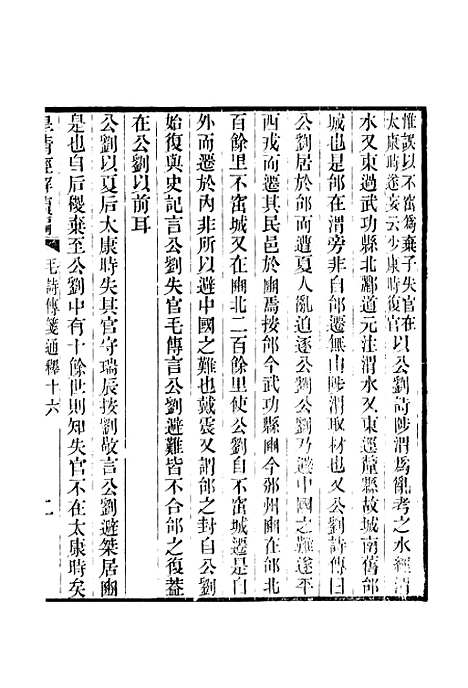 惟誤以不窋爲棄子失官在
太康時遂妄云少康時復官
以公劉詩陟渭爲亂考之水經渭
水又東過武功縣北酈道元注渭水又東逕斄縣故城南舊邰
城也是邰在渭旁非自邰遷無由陟渭取材也公劉詩傳曰
公劉居於邰而遭夏人亂迫逐公劉公劉乃避中國之難遂平
西戎而遷其民邑於豳焉按邰今武功縣豳今邠州豳在邰北
百餘里不窋城又在豳北二百餘里使公劉自不窋城遷是自
外而遷於內非所以避中國之難也戴震又謂邰之封自公劉
始復與史記言公劉失官毛傳言公劉避難皆不合邰之復葢
在公劉以前耳
公劉以夏后太康時失其官守瑞辰按劉敬言公劉避桀居豳
是也自后稷棄至公劉中有十餘世則知失官不在太康時矣
皇清經解續編 毛詩傳箋通釋十六 二